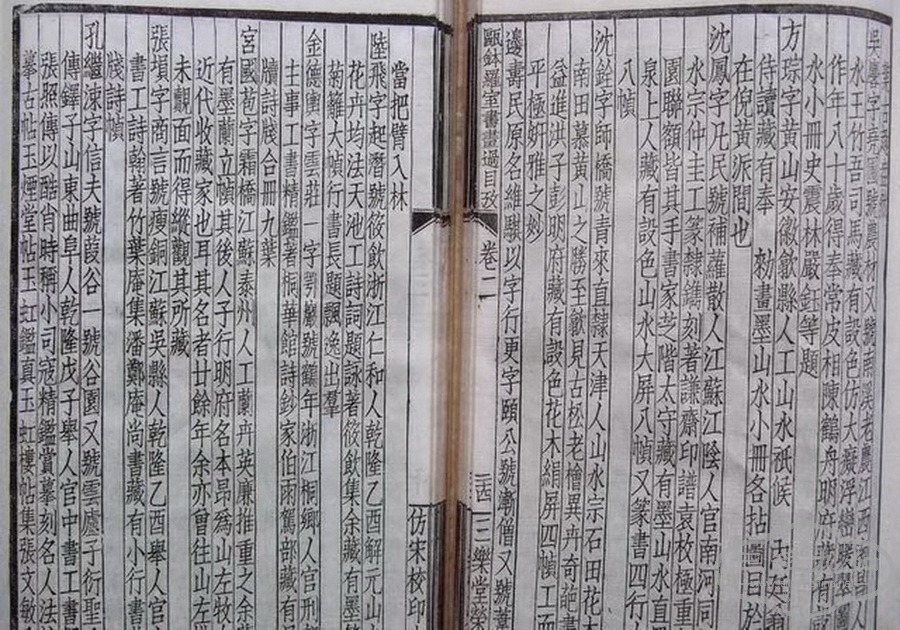 水王竹吾司馬藏有設色仿大癡浮巒暖翠圖
作年八十歲得奉常皮相陳鶴舟明府藏有設
水小冊史震林嚴鈺等題
方琮字黃山安徽歙縣人工山水祇候 內廷
侍讀藏有奉 勑畫墨山水小冊各拈圖目於
在倪黃派間也
沈鳳字凡民號補蘿散人江蘇江陰人官南河同
水宗仲圭工篆隸鐫刻著謙齋印譜袁枚極重
園聯額皆其手書家芝階太守藏有墨山水直
泉上人藏有設色山水大屏八幀又篆書四行
八幀
沈銓字師橋號青來直隸天津人山水宗石田花木
南田慕黃山之勝至歙見古松老檜異卉奇葩
益進洪子彭明府藏有設色花木絹屏四幀工而
平極妍雅之妙
邊壽民原名維騏以字行更字頤公號漸僧又號葦
甌鉢羅室書畫過目攷 卷二
三樂堂
仿宋校印
當把臂入林
陸飛字起潛號筱飲浙江仁和人乾隆乙酉解元山
花卉均法天池工詩詞題詠著筱飲集余藏有墨
菊離大幀行書長題飄逸出羣
金德輿字雲莊一字鄂巖號鶴年浙江桐鄉人官刑
主事工書精鑑著桐華館詩鈔家伯雨駕部藏有
牘詩牋合冊九葉
宮國苞字霜橋江蘇泰州人工蘭卉英廉推重之余
有墨蘭立幀其後人子行明府名本昂為山左牧
近代收藏家也耳其名者廿餘年余亦曾往山左
未覿面而得縱觀其所藏
張塤字商言號瘦銅江蘇吳縣人乾隆乙酉舉人官
書工詩翰者竹葉庵集潘鄭庵尚書藏有小行書
牋詩幀
孔繼涑字信夫號葭谷一號谷園又號雲廬子衍聖
傳鐸子山東曲阜人乾隆戊子舉人官中書工書
張照傳以酷肖時稱小司寇精鑑賞摹刻名人法
摹古帖玉煙堂帖玉虹鑑真玉虹樓帖集張文敏